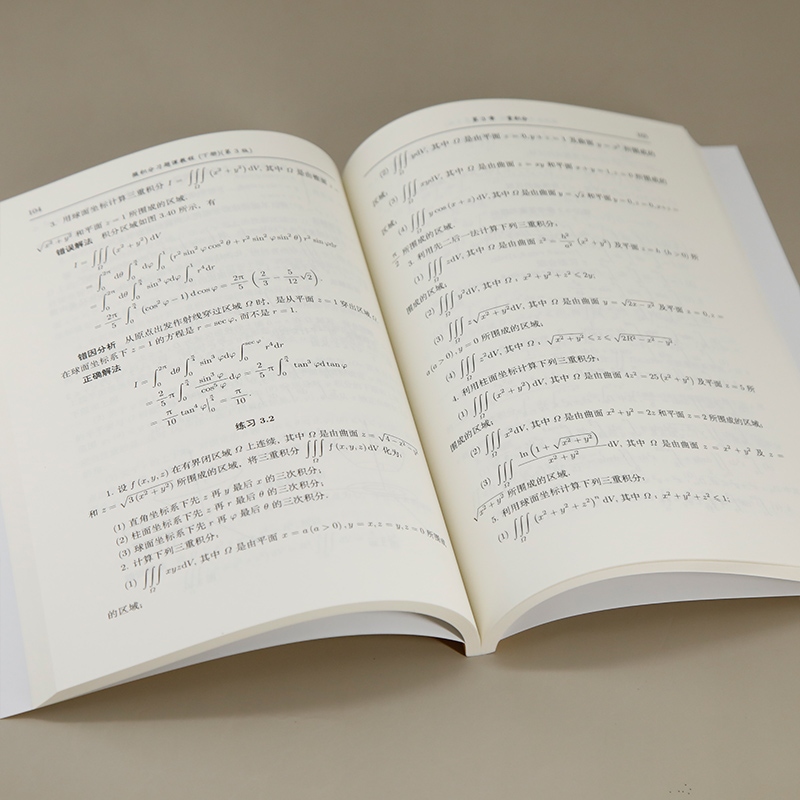 104 微积分习题课教程(下册)(第3版)
3. 用球面坐标计算三重积分 I = ∭_Ω (x²+y²)dV, 其中 Ω 是由曲面 z =
√(x²+y²) 和平面 z=1 所围成的区域.
错误解法 积分区域如图 3.40 所示, 有
I = ∭_Ω (x²+y²)dV
= ∫_0^{2π} dθ ∫_0^{π/4} dφ ∫_0^1 (r² sin²φ cos²θ + r² sin²φ sin²θ) r² sinφ dr
= ∫_0^{2π} dθ ∫_0^{π/4} sin³φ dφ ∫_0^1 r⁴ dr
= 2π/5 ∫_0^{π/4} (cos²φ − 1) d cosφ = 2π/5 (2/3 − 5/12 √2).
错因分析 从原点出发作射线穿过区域 Ω 时, 是从平面 z=1 穿出区域 Ω
在球面坐标系下 z=1 的方程是 r=secφ, 而不是 r=1.
正确解法
I = ∫_0^{2π} dθ ∫_0^{π/4} sin³φ dφ ∫_0^{secφ} r⁴ dr
= 2/5 π ∫_0^{π/4} sin³φ/cos⁵φ dφ = 2/5 π ∫_0^{π/4} tan³φ d tanφ
= π/10 tan⁴φ |_0^{π/4} = π/10.
练习 3.2
1. 设 f(x,y,z) 在有界闭区域 Ω 上连续, 其中 Ω 是由曲面 z = √(4−x²−y²)
和 z = √(3(x²+y²)) 所围成的区域, 将三重积分 ∭_Ω f(x,y,z)dV 化为:
(1) 直角坐标系下先 z 再 y 最后 x 的三次积分;
(2) 柱面坐标系下先 z 再 r 最后 θ 的三次积分;
(3) 球面坐标系下先 r 再 φ 最后 θ 的三次积分.
2. 计算下列三重积分:
(1) ∭_Ω xyzdV, 其中 Ω 是由平面 x=a(a>0), y=x, z=y, z=0 所围成
的区域;
第3章 重积分
(2) ∭_Ω ydV, 其中 Ω 是由平面 z=0, y+z=1 及曲面 y=x² 所围成的
区域;
(3) ∭_Ω xydV, 其中 Ω 是由曲面 z=xy 和平面 x+y=1, z=0 所围成的
区域;
(4) ∭_Ω y cos(x+z)dV, 其中 Ω 是由曲面 y=√x 和平面 y=0, z=0, x+z=
π/2 所围成的区域.
3. 利用先二后一法计算下列三重积分:
(1) ∭_Ω zdV, 其中 Ω 是由曲面 z² = h²/a² (x²+y²) 及平面 z=h (h>0) 所
围成的区域;
(2) ∭_Ω y²dV, 其中 Ω: x²+y²+z² ≤ 2y;
(3) ∭_Ω z√(x²+y²)dV, 其中 Ω 是由曲面 y=√(2x−x²) 及平面 z=0, z=
a(a>0), y=0 所围成的区域;
(4) ∭_Ω z²dV, 其中 Ω: √(x²+y²) ≤ z ≤ √(2R²−x²−y²).
4. 利用柱面坐标计算下列三重积分:
(1) ∭_Ω (x²+y²)dV, 其中 Ω 是由曲面 4z²=25(x²+y²) 及平面 z=5 所
围成的区域;
(2) ∭_Ω x²dV, 其中 Ω 是由曲面 x²+y²=2z 和平面 z=2 所围成的区域;
(3) ∭_Ω ln(1+√(x²+y²))/(x²+y²) dV, 其中 Ω 是由曲面 z=x²+y² 及 z=
√(x²+y²) 所围成的区域.
5. 利用球面坐标计算下列三重积分:
(1) ∭_Ω (x²+y²+z²)ⁿ dV, 其中 Ω: x²+y²+z² ≤ 1;